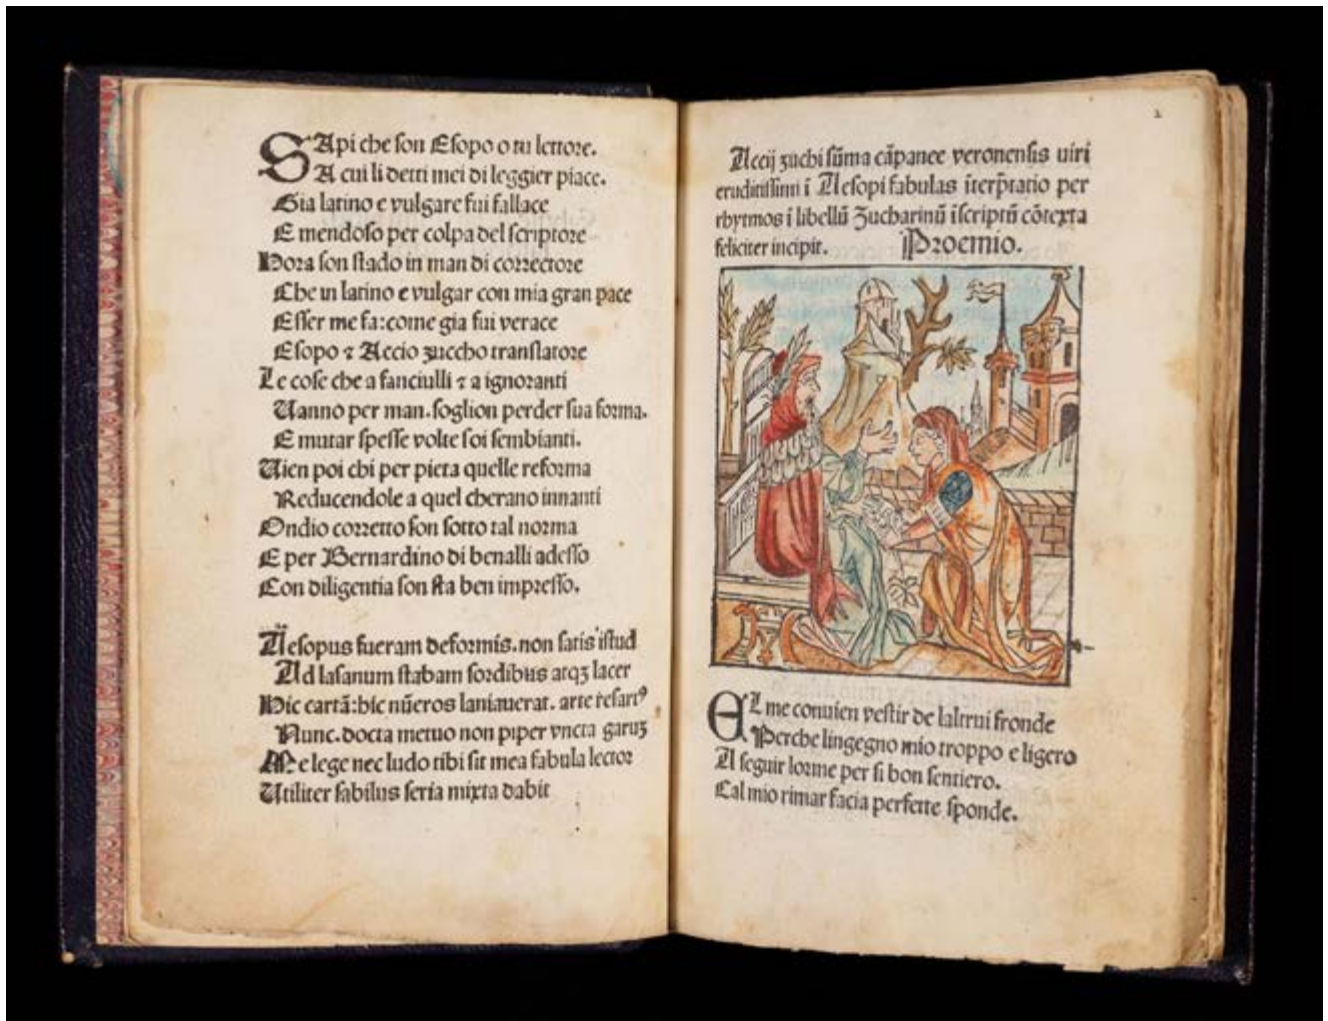 SApi che son Esopo o tu lettore.
A cui li detti mei di leggier piace.
Gia latino e vulgare fui fallace
E mendoso per colpa del scriptore
Hora son stado in man di correctore
Che in latino e vulgar con mia gran pace
Esser me fa:come gia fui verace
Esopo ⁊ Accio zuccho translatore
Le cose che a fanciulli ⁊ a ignoranti
Uanno per man.soglion perder sua forma.
E mutar spesse volte soi sembianti.
Uien poi chi per pieta quelle reforma
Reducendole a quel cherano innanti
Ondio corretto son sotto tal norma
E per Bernardino di benalli adesso
Con diligentia son sta ben impresso.
Aesopus fueram deformis.non satis istud
Ad lasanum stabam sordibus atqꝫ lacer
Hic cartā:hic nūeros laniauerat. arte resartꝰ
Nunc.docta metuo non piper vncta garuꝫ
Me lege nec ludo tibi sit mea fabula lector
Utiliter fabilus seria mixta dabit
2
Accij zuchi sūma cāpanee veronensis uiri
eruditissimi ī Aesopi fabulas īterp̄tatio per
rhytmos ī libellū Zucharinū īscriptū cōtexta
feliciter incipit. Proemio.
EL me conuien vestir de laltrui fronde
Perche lingegno mio troppo e ligero
A seguir lorme per si bon sentiero.
Cal mio rimar facia perfette sponde.